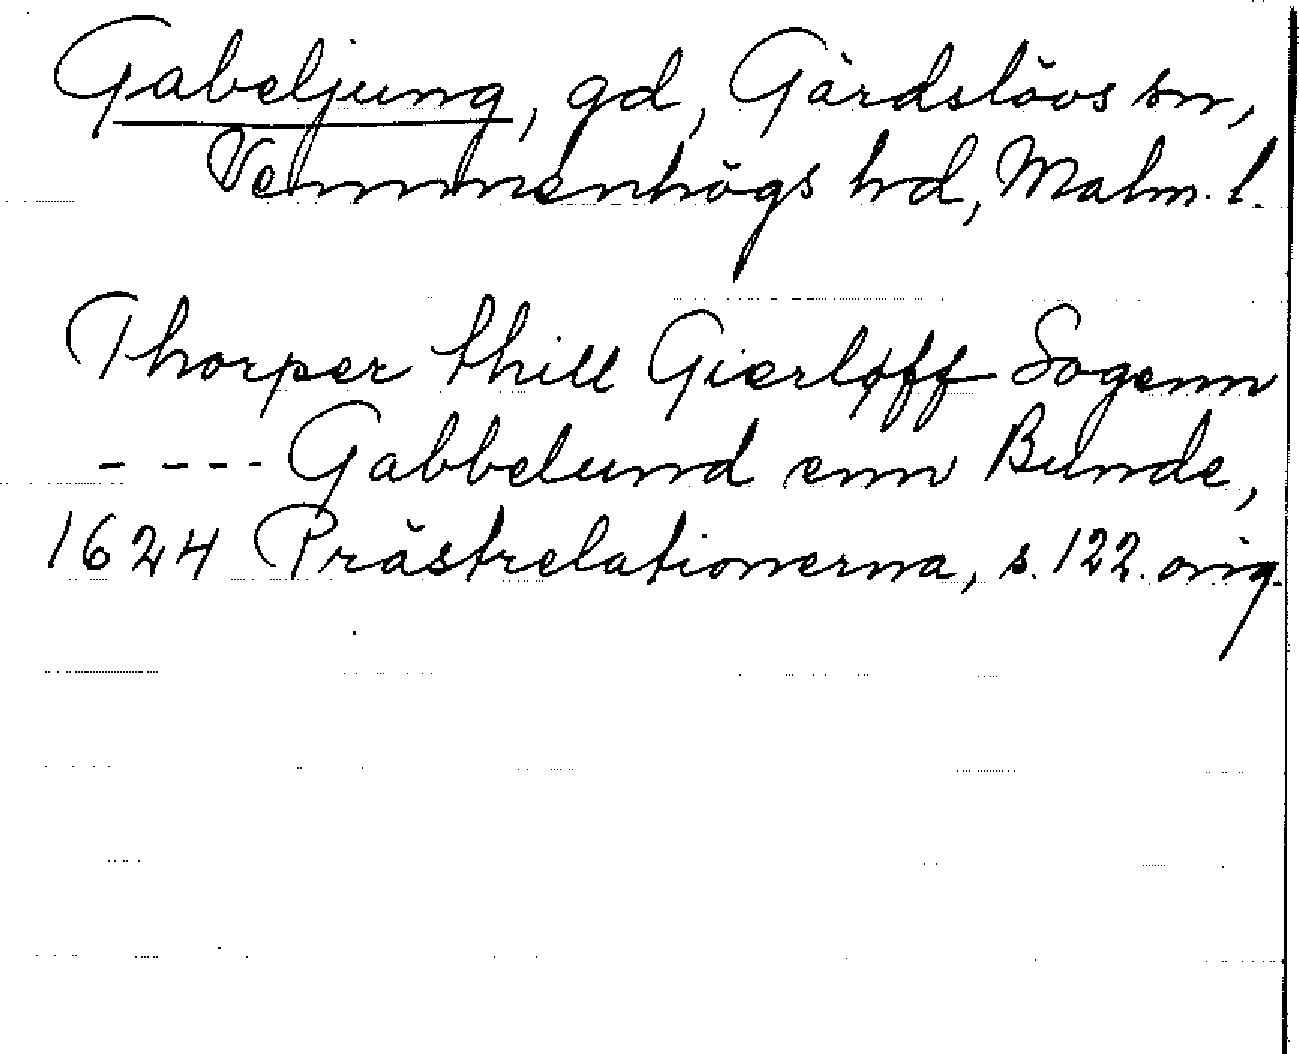 Gabeljung, gd, Gärdslövs sn,
Vemmenhögs hd, Malm. l.
Thorper thill Gierløff Sogenn
- - - - Gabbelund enn Bunde,
1624 Prästrelationerna, s. 122. orig.